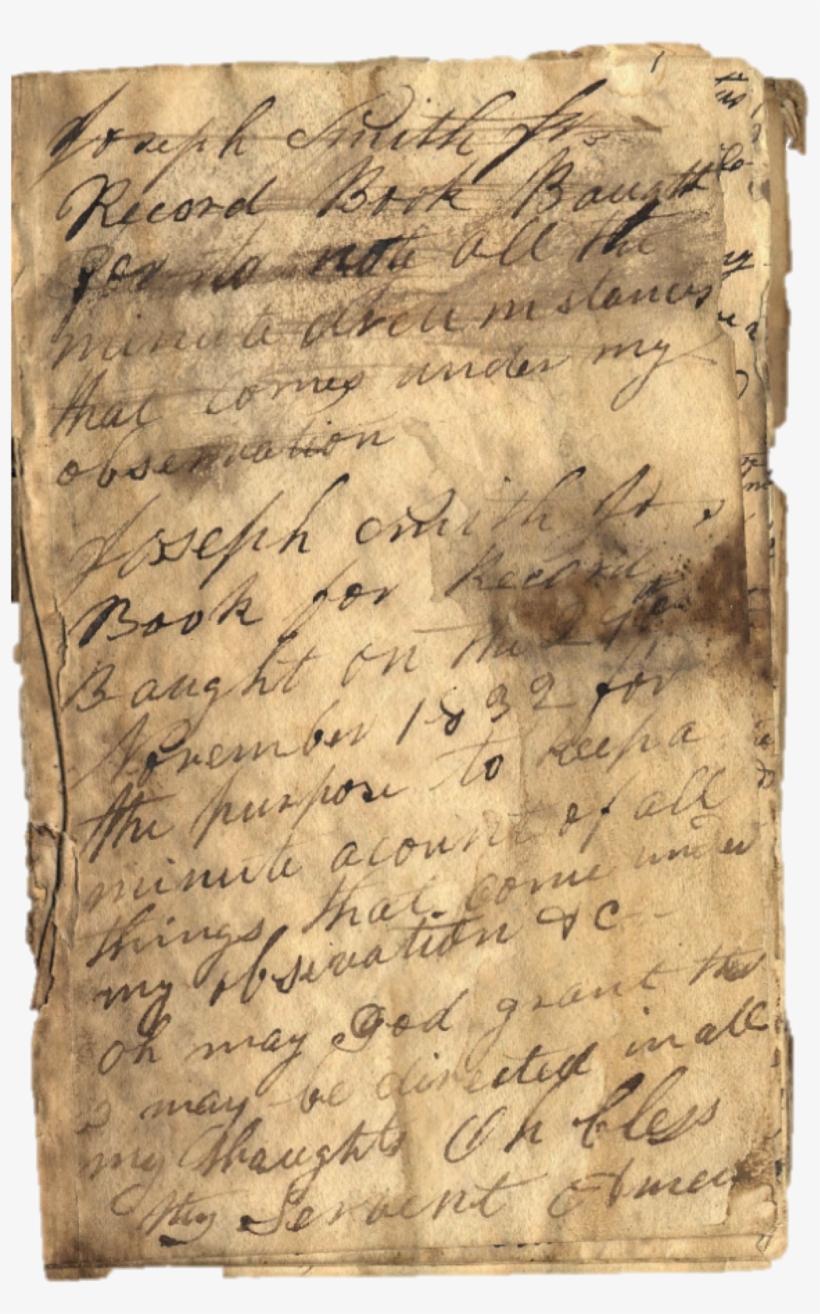 Joseph Smith Jr—
Record Book Baught
for to note all the
minute circumstances
that comes under my
observation
Joseph Smith Jrs
Book for Record
Baught on the 27th
November 1832 for
the purpose to keep a
minute acount of all
things that come under
my obsevation &c—
oh may God grant that
I may be directed in all
my thaughts Oh bless
thy Servent Amen